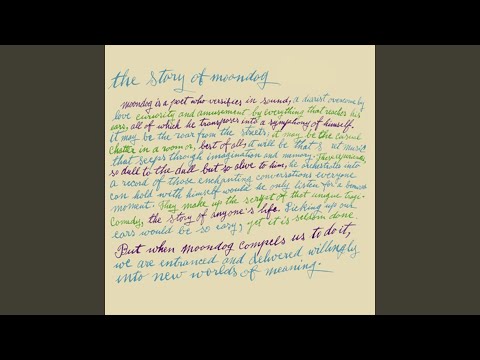 the story of moondog
moondog is a poet who versifies in sound, a diarist overcome by
love curiosity and amusement by everything that reaches his
ears, all of which he transposes into a symphony of himself.
it may be the roar from the streets, it may be the casual
chatter in a room or, best of all, it will be that s ut music
that seeps through imagination and memory. These upwards
so dull to the dull but so alive to him, he orchestrates into
a record of those enchanting conversations everyone
can hold with himself would he only listen for a
moment. They make up the script of that unique tragi-
Comedy, the story of anyone's life. Picking up one
ears would be so easy, yet it is seldom done.
But when moondog compels us to do it,
we are entranced and delivered willingly
into new worlds of meaning.